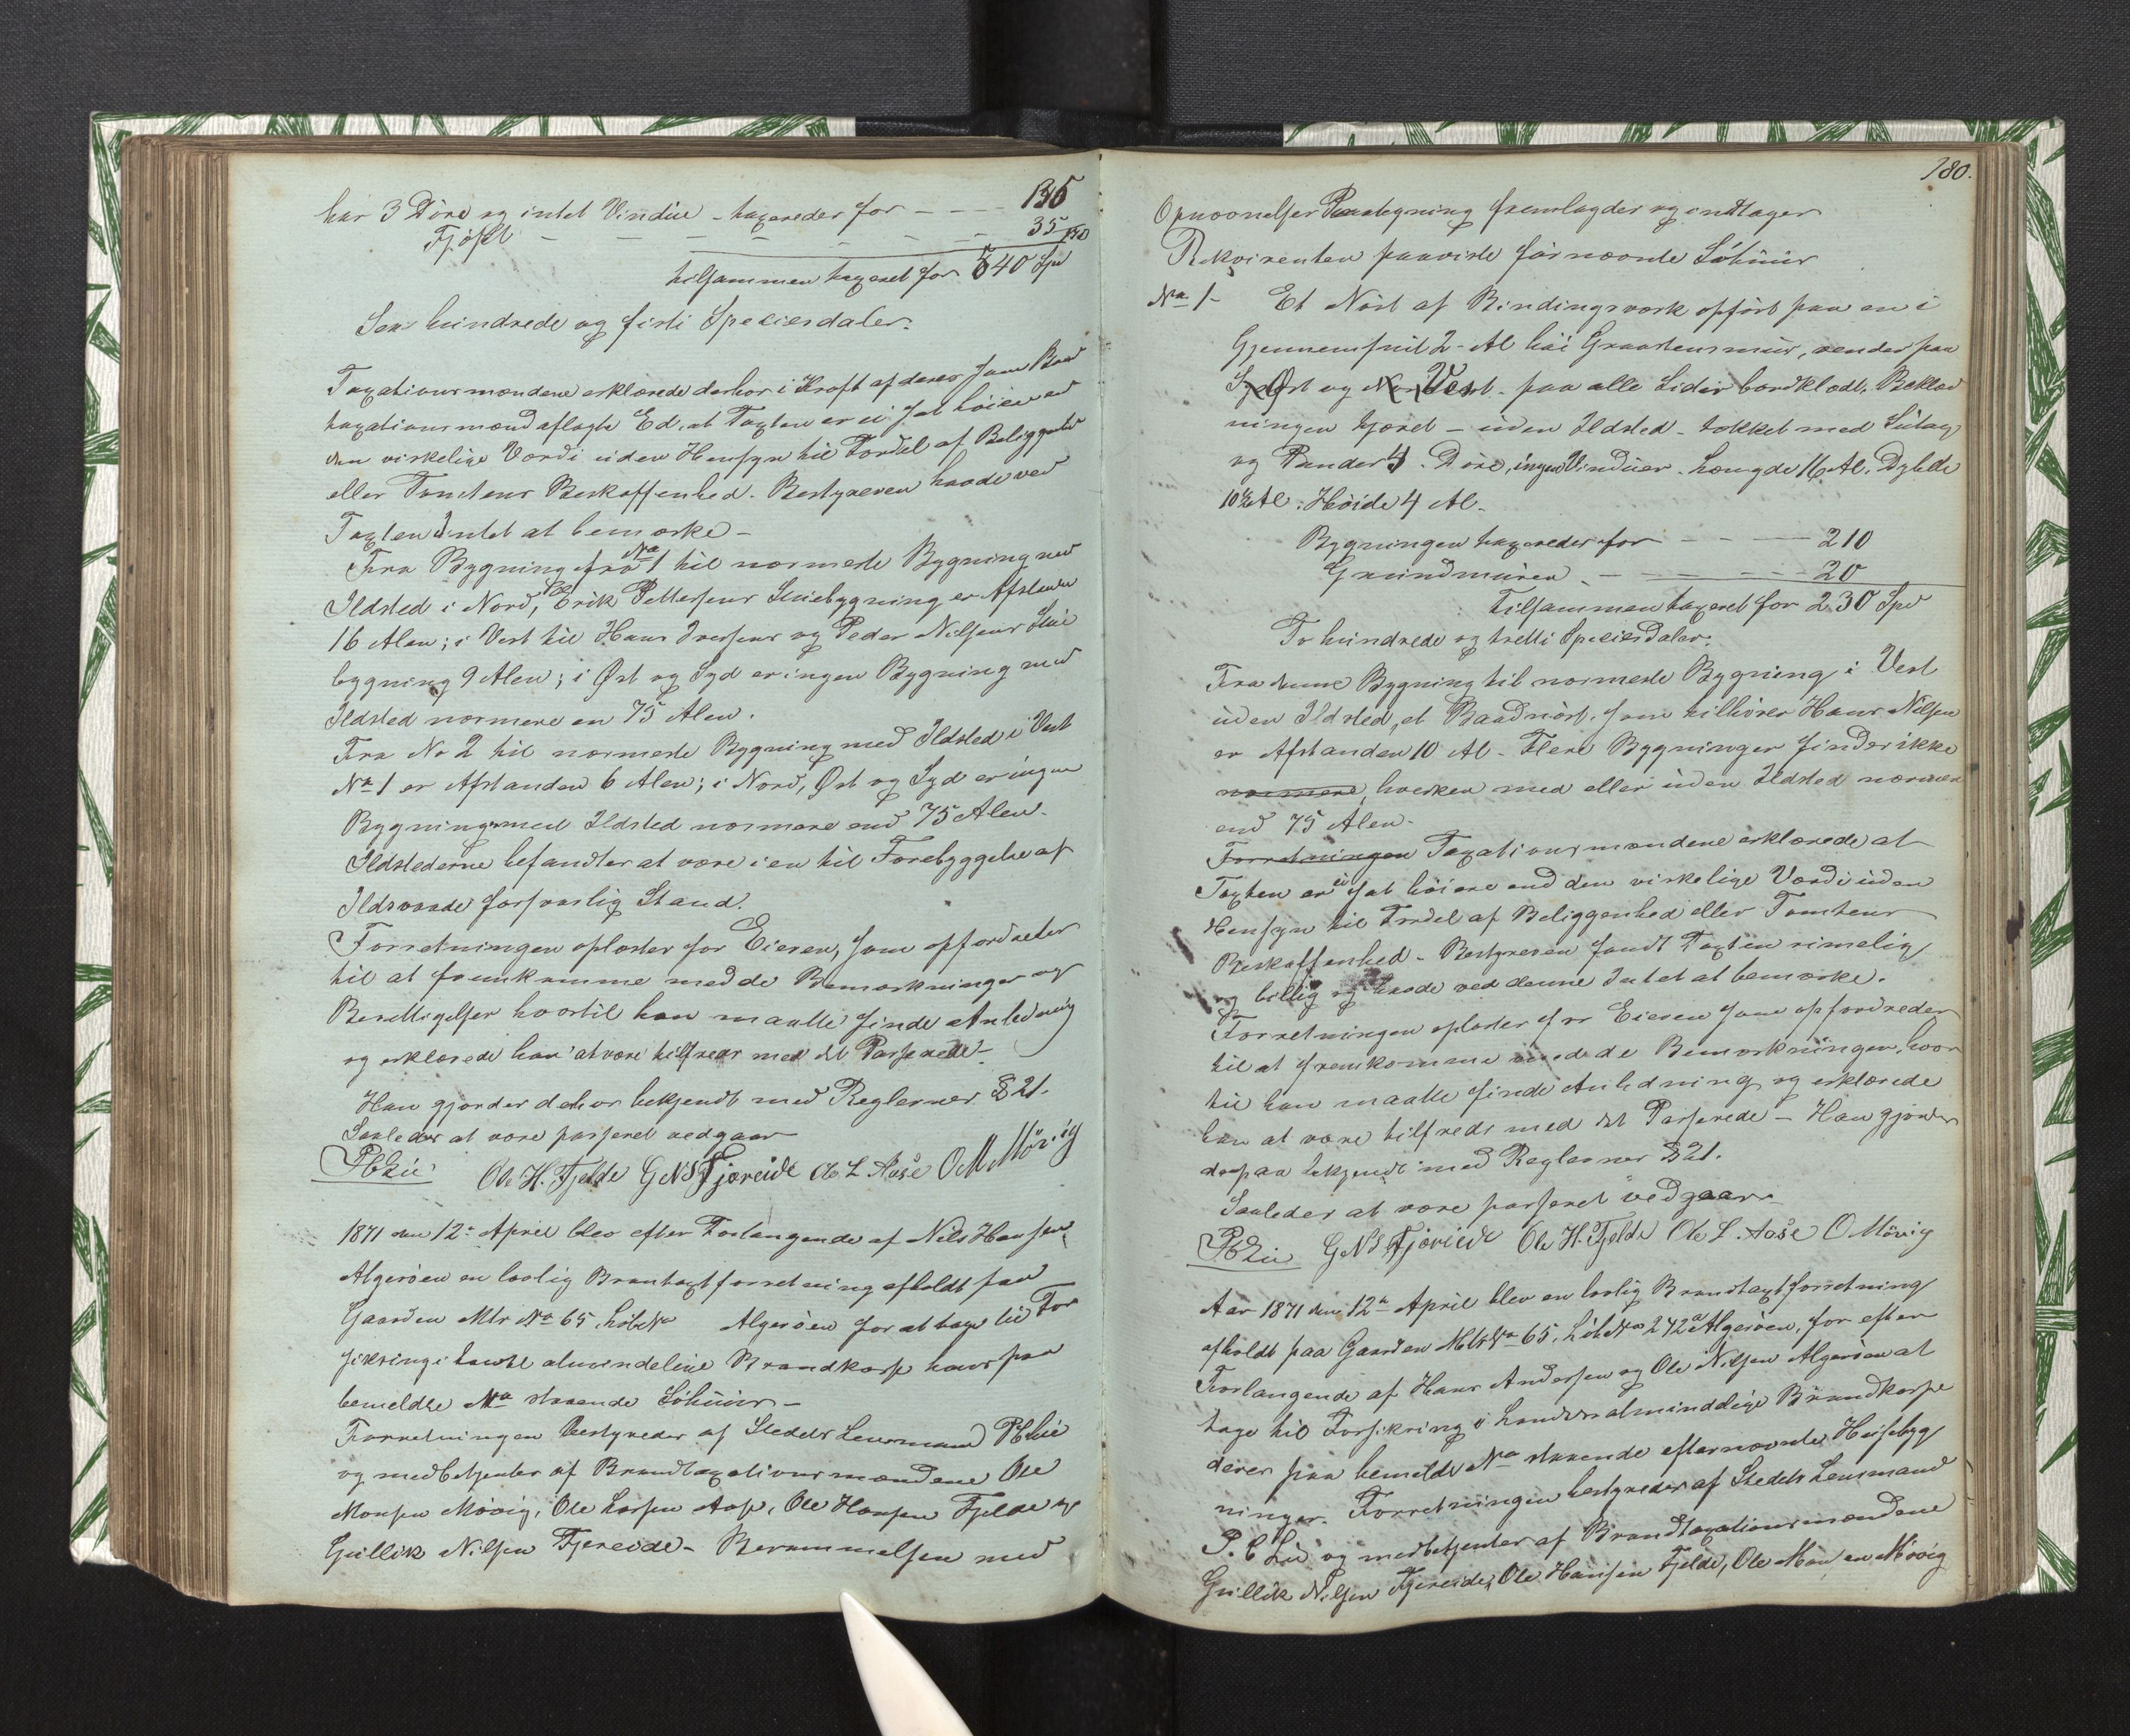 har 3 Döre og intet Vindue - taxeredes for - - - 135
Fjöset - - - - - - - - 35 170
tilsammen taxeret for 640 Spd
Sex hundrede og firti Speciesdaler.
Taxationsmændene erklærede derhos i Kraft af deres som Brand
taxationsmænd aflagte Ed, at Taxten er ei sat höiere end
den virkelige Værdi uden Hensyn til Fordel af Beliggenhed
eller Tomtens Beskaffenhed. Bestyreren havde ved
Taxten Intet at bemærke -
Fra Bygning No 1 til nærmeste Bygning med
Ildsted i Nord, Erik Pettersens Stuebygning er Afstanden
16 Alen; i Vest til Hans Iversens og Peder Nilsens Stue
bygning 9 Alen; i Øst og Syd er ingen Bygning med
Ildsted nærmere en 75 Alen.
Fra No 2 til nærmeste Bygning med Ildsted i Vest
No 1 er Afstanden 6 Alen; i Nord, Øst og Syd er ingen
Bygning med Ildsted nærmere end 75 Alen.
Ildstederne befandtes at være i en til Forebyggelse af
Ildsvaade forsvarlig Stand.
Forretningen oplæstes for Eieren, som opfordredes
til at fremkomme med de Bemærkninger og
Berettigelser hvortil han maatte finde Anledning
og erklærede han at være tilfreds med det Passerede -
Han gjordes derhos bekjendt med Reglernes § 21.
Saaledes at være passeret vedgaar
PCLie Ole H. Fjelde GNS Fjæreide Ole L Aase OM Mövig
1871 den 12te April blev efter Forlangende af Nils Hansen
Algeröen en lovlig Brantaxtforretning afholdt paa
Gaarden Mtr No 65, Löb No Algeröen for at tage til For
sikring i Landets almindelige Brandkasse hans paa
bemeldte No staaende Söhuus -
Forretningen bestyredes af Stedets Lensmand PCLie
og medbetjentes af Brandtaxationsmændene Ole
Monsen Mövig, Ole Larsen Aase, Ole Hansen Fjelde og
Gullik Nilsen Fjereide - Berammelsen med
180.
Opnævnelses Paategning fremlagdes og indtages
Rekvirenten paaviste fornævnte Söhuus
No 1 - Et Nöst af Bindingsværk opfört paa en i
Gjennemsnit 2 Al höi Graastensmuur, vender paa
Øst og Vest - paa alle Sider bordklædt. Beklæd
ningen tjæret - uden Ildsted - tækket med Sutag
og Pander 4 Döre, ingen Vinduer. Længde 16 Al. Dybde
10½ Al. Höide 4 Al.
Bygningen taxeredes for - - - 210
Grundmuren - - - - 20
Tilsammen taxeret for 230 Spd
To hundrede og tretti Speciesdaler.
Fra denne Bygning til nærmeste Bygning i Vest
uden Ildsted, et Baadnöst, som tilhörer Hans Nilsen
er Afstanden 10 Al - Flere Bygninger findes ikke
nærmere, hverken med eller uden Ildsted nærmere
end 75 Alen.
Forretningen Taxationsmændene erklærede at
Taxten er ei sat höiere end den virkelige Værdi uden
Hensyn til Fordel af Beliggenhed eller Tomtens
Beskaffenhed - Bestyreren fandt Taxten rimelig
og billig og havde ved denne Intet at bemærke.
Forretningen oplæstes for Eieren som opfordredes
til at fremkomme med de Bemærkninger, hvor
til han maatte finde Anledning og erklærede
han at være tilfreds med det Passerede - Han gjordes
derpaa bekjendt med Reglernes § 21.
Saaledes at være passeret vedgaar
PCLie GNS Fjæreide Ole H. Fjelde Ole L. Aase O Mövig
Aar 1871 den 12te April blev en lovlig Brandtaxtforretning
afholdt paa Gaarden Mtr No 65, Löb No 242a Algeröen, for efter
Forlangende af Hans Andersen og Ole Nilsen Algeröen at
tage til Forsikring i Landets almindelige Brandkasse
deres paa bemeldte No staaende efternævnte Huusebyg
ninger. Forretningen bestyredes af Stedets Lensmand
P. C Lie og medbetjentes af Brandtaxationsmændene
Gullik Nilsen Fjereide, Ole Hansen Fjelde, Ole Monsen Mövig